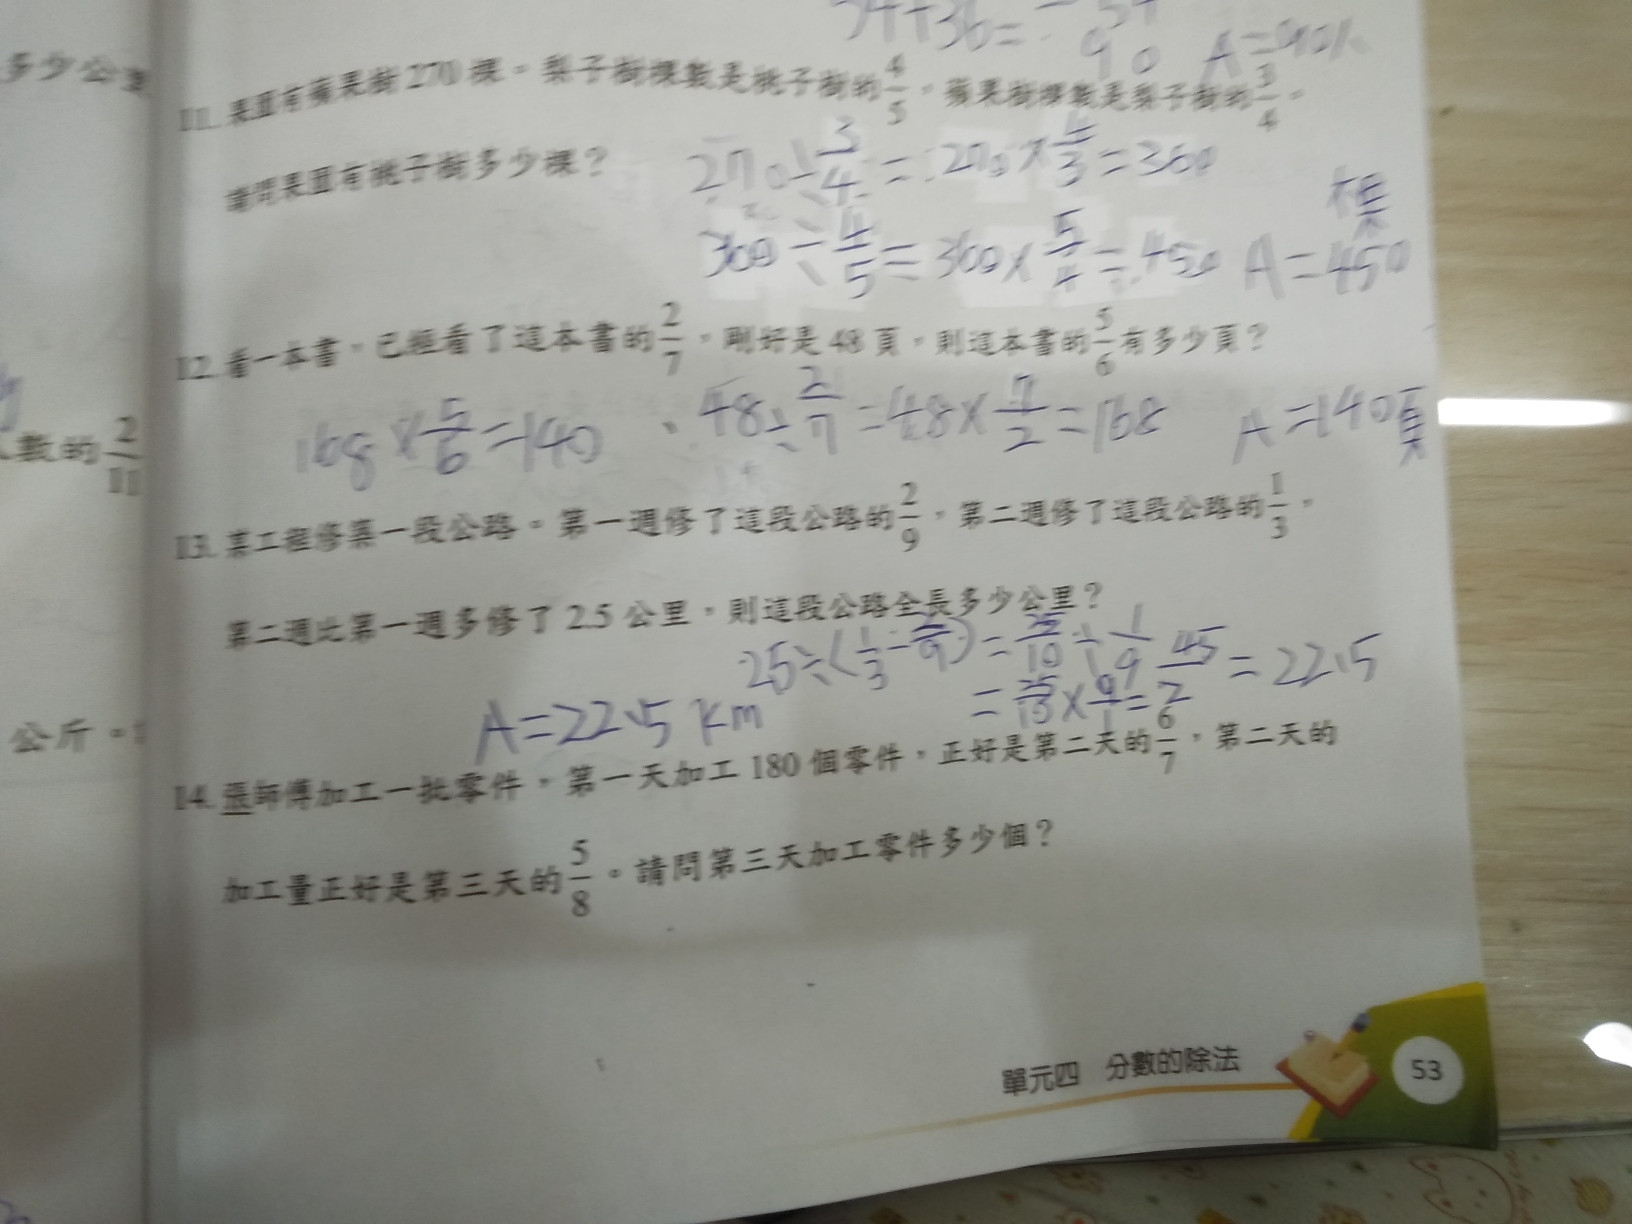 54+36= 54
90 A=90%
多少公里
11. 果園有蘋果樹 270 棵。梨子樹棵數是桃子樹的 4/5，蘋果樹棵數是梨子樹的 3/4。
請問果園有桃子樹多少棵？
270÷3/4=270×4/3=360
棵
360÷4/5=360×5/4=450 A=450
12. 看一本書，已經看了這本書的 2/7，剛好是 48 頁，則這本書的 5/6 有多少頁？
168×5/6=140 、48÷2/7=48×7/2=168 A=140頁
數的 2/11
13. 某工程修築一段公路。第一週修了這段公路的 2/9，第二週修了這段公路的 1/3，
第二週比第一週多修了 2.5 公里，則這段公路全長多少公里？
25÷(1/3-2/9)=25/10÷1/9 45/2=22.5
=25/10×9/1=
A=22.5 km
公斤。
14. 張師傅加工一批零件，第一天加工 180 個零件，正好是第二天的 6/7，第二天的
加工量正好是第三天的 5/8。請問第三天加工零件多少個？
單元四 分數的除法
53